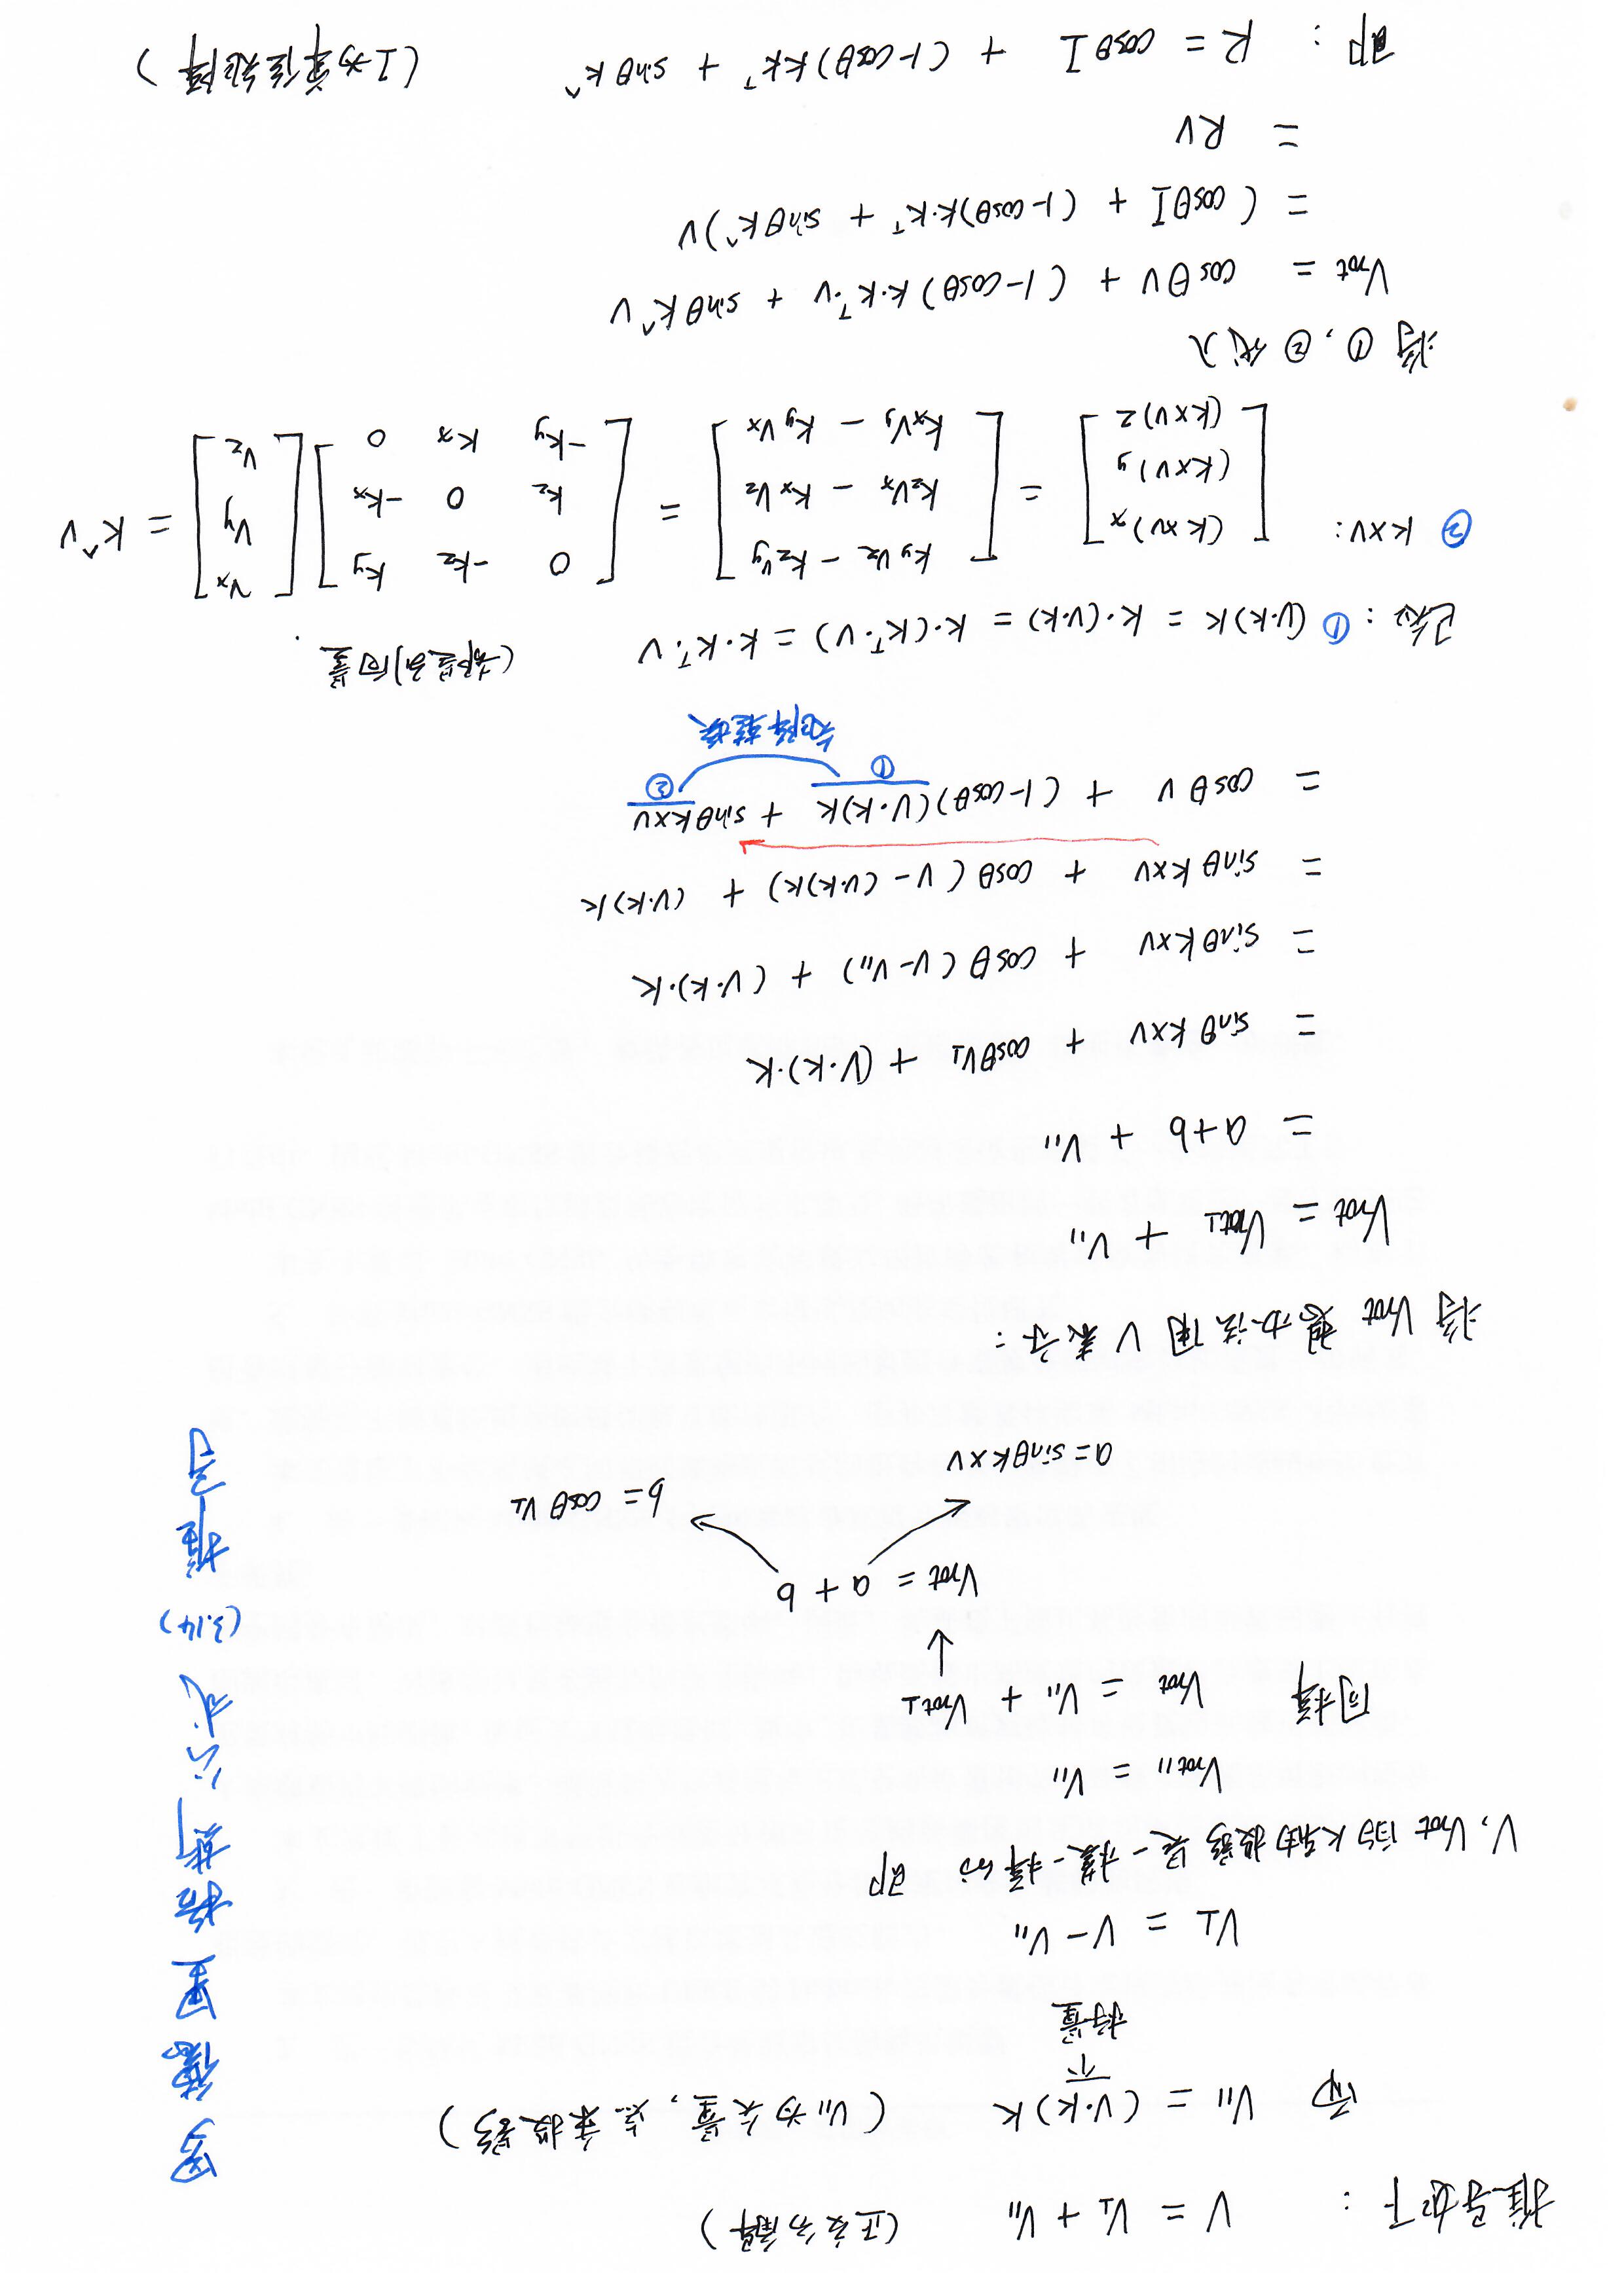 推导如下： V = V⊥ + V∥ （正交分解）
而 V∥ = (V·K)K （V∥为矢量，点乘投影）
标量
V⊥ = V - V∥
V, Vrot 的K轴投影是一模一样的 即
Vrot∥ = V∥
同样 Vrot = V∥ + Vrot⊥
↓
Vrot = a + b
b = cosθ V⊥
a = sinθ K×V
将 Vrot 想办法用 V 表示：
Vrot = Vrot⊥ + V∥
= a+b + V∥
= sinθ K×V + cosθV⊥ + (V·K)·K
= sinθ K×V + cosθ(V-V∥) + (V·K)·K
= sinθ K×V + cosθ(V-(V·K)K) + (V·K)K
= cosθ V + (1-cosθ)(V·K)K + sinθ K×V
① ②
矩阵转换
已知：① (V·K)K = K·(V·K) = K·(K^T·V) = K·K^T·V （都是列向量.
② K×V: [(K×V)x (K×V)y (K×V)z] = [kyvz - kzvy kzvx - kxvz kxvy - kyvx] = [0 -kz ky kz 0 -kx -ky kx 0] [vx vy vz] = K^V
将①,②代入
Vrot = cosθV + (1-cosθ)K·K^T·V + sinθK^V
= (cosθI + (1-cosθ)K·K^T + sinθK^)V
= RV
即： R = cosθI + (1-cosθ)KK^T + sinθK^ （I为单位矩阵）
罗德里格斯公式(3.14)推导